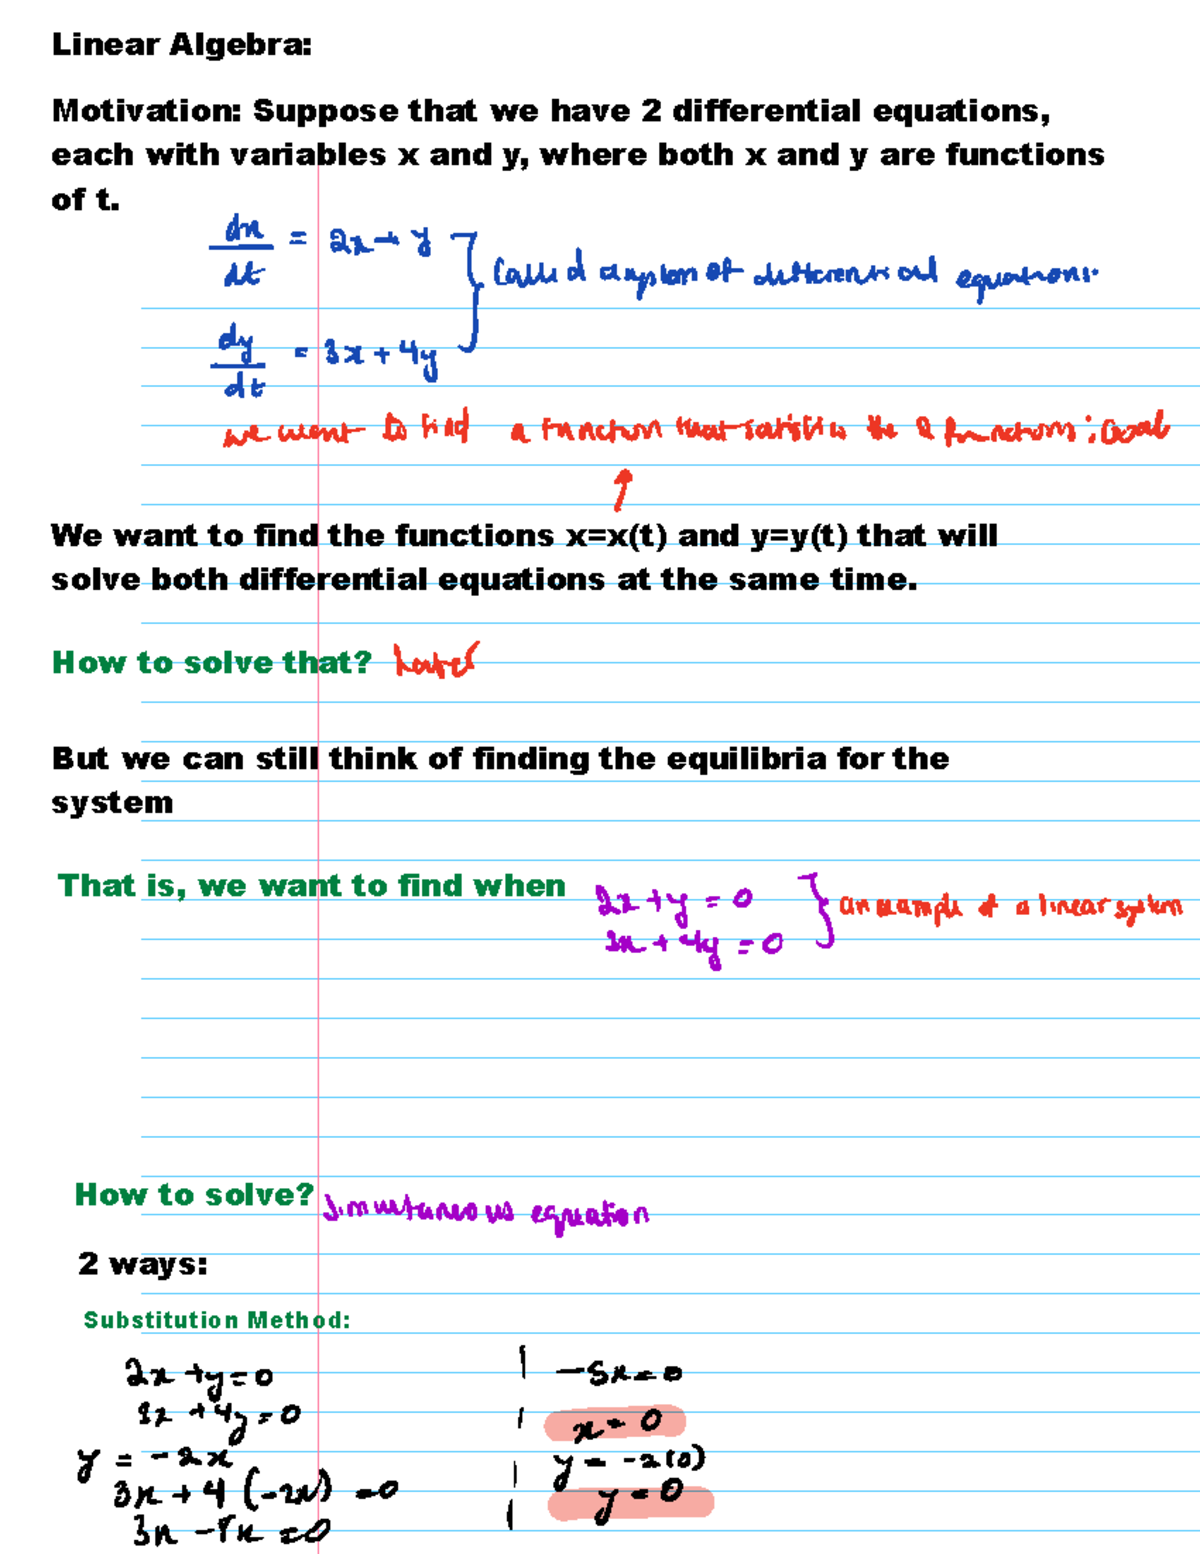 Linear Algebra:
Motivation: Suppose that we have 2 differential equations,
each with variables x and y, where both x and y are functions
of t.
dx/dt = 2x + y
Called a system of differential equations.
dy/dt = 3x + 4y
we want to find a function that satisfies the 2 functions; Goal
We want to find the functions x=x(t) and y=y(t) that will
solve both differential equations at the same time.
How to solve that? Later
But we can still think of finding the equilibria for the
system
That is, we want to find when 2x + y = 0
3x + 4y = 0
an example of a linear system
How to solve? Simultaneous equation
2 ways:
Substitution Method:
2x + y = 0
3x + 4y = 0
y = -2x
3x + 4 (-2x) = 0
3x - 8x = 0
-5x = 0
x = 0
y = -2(0)
y = 0